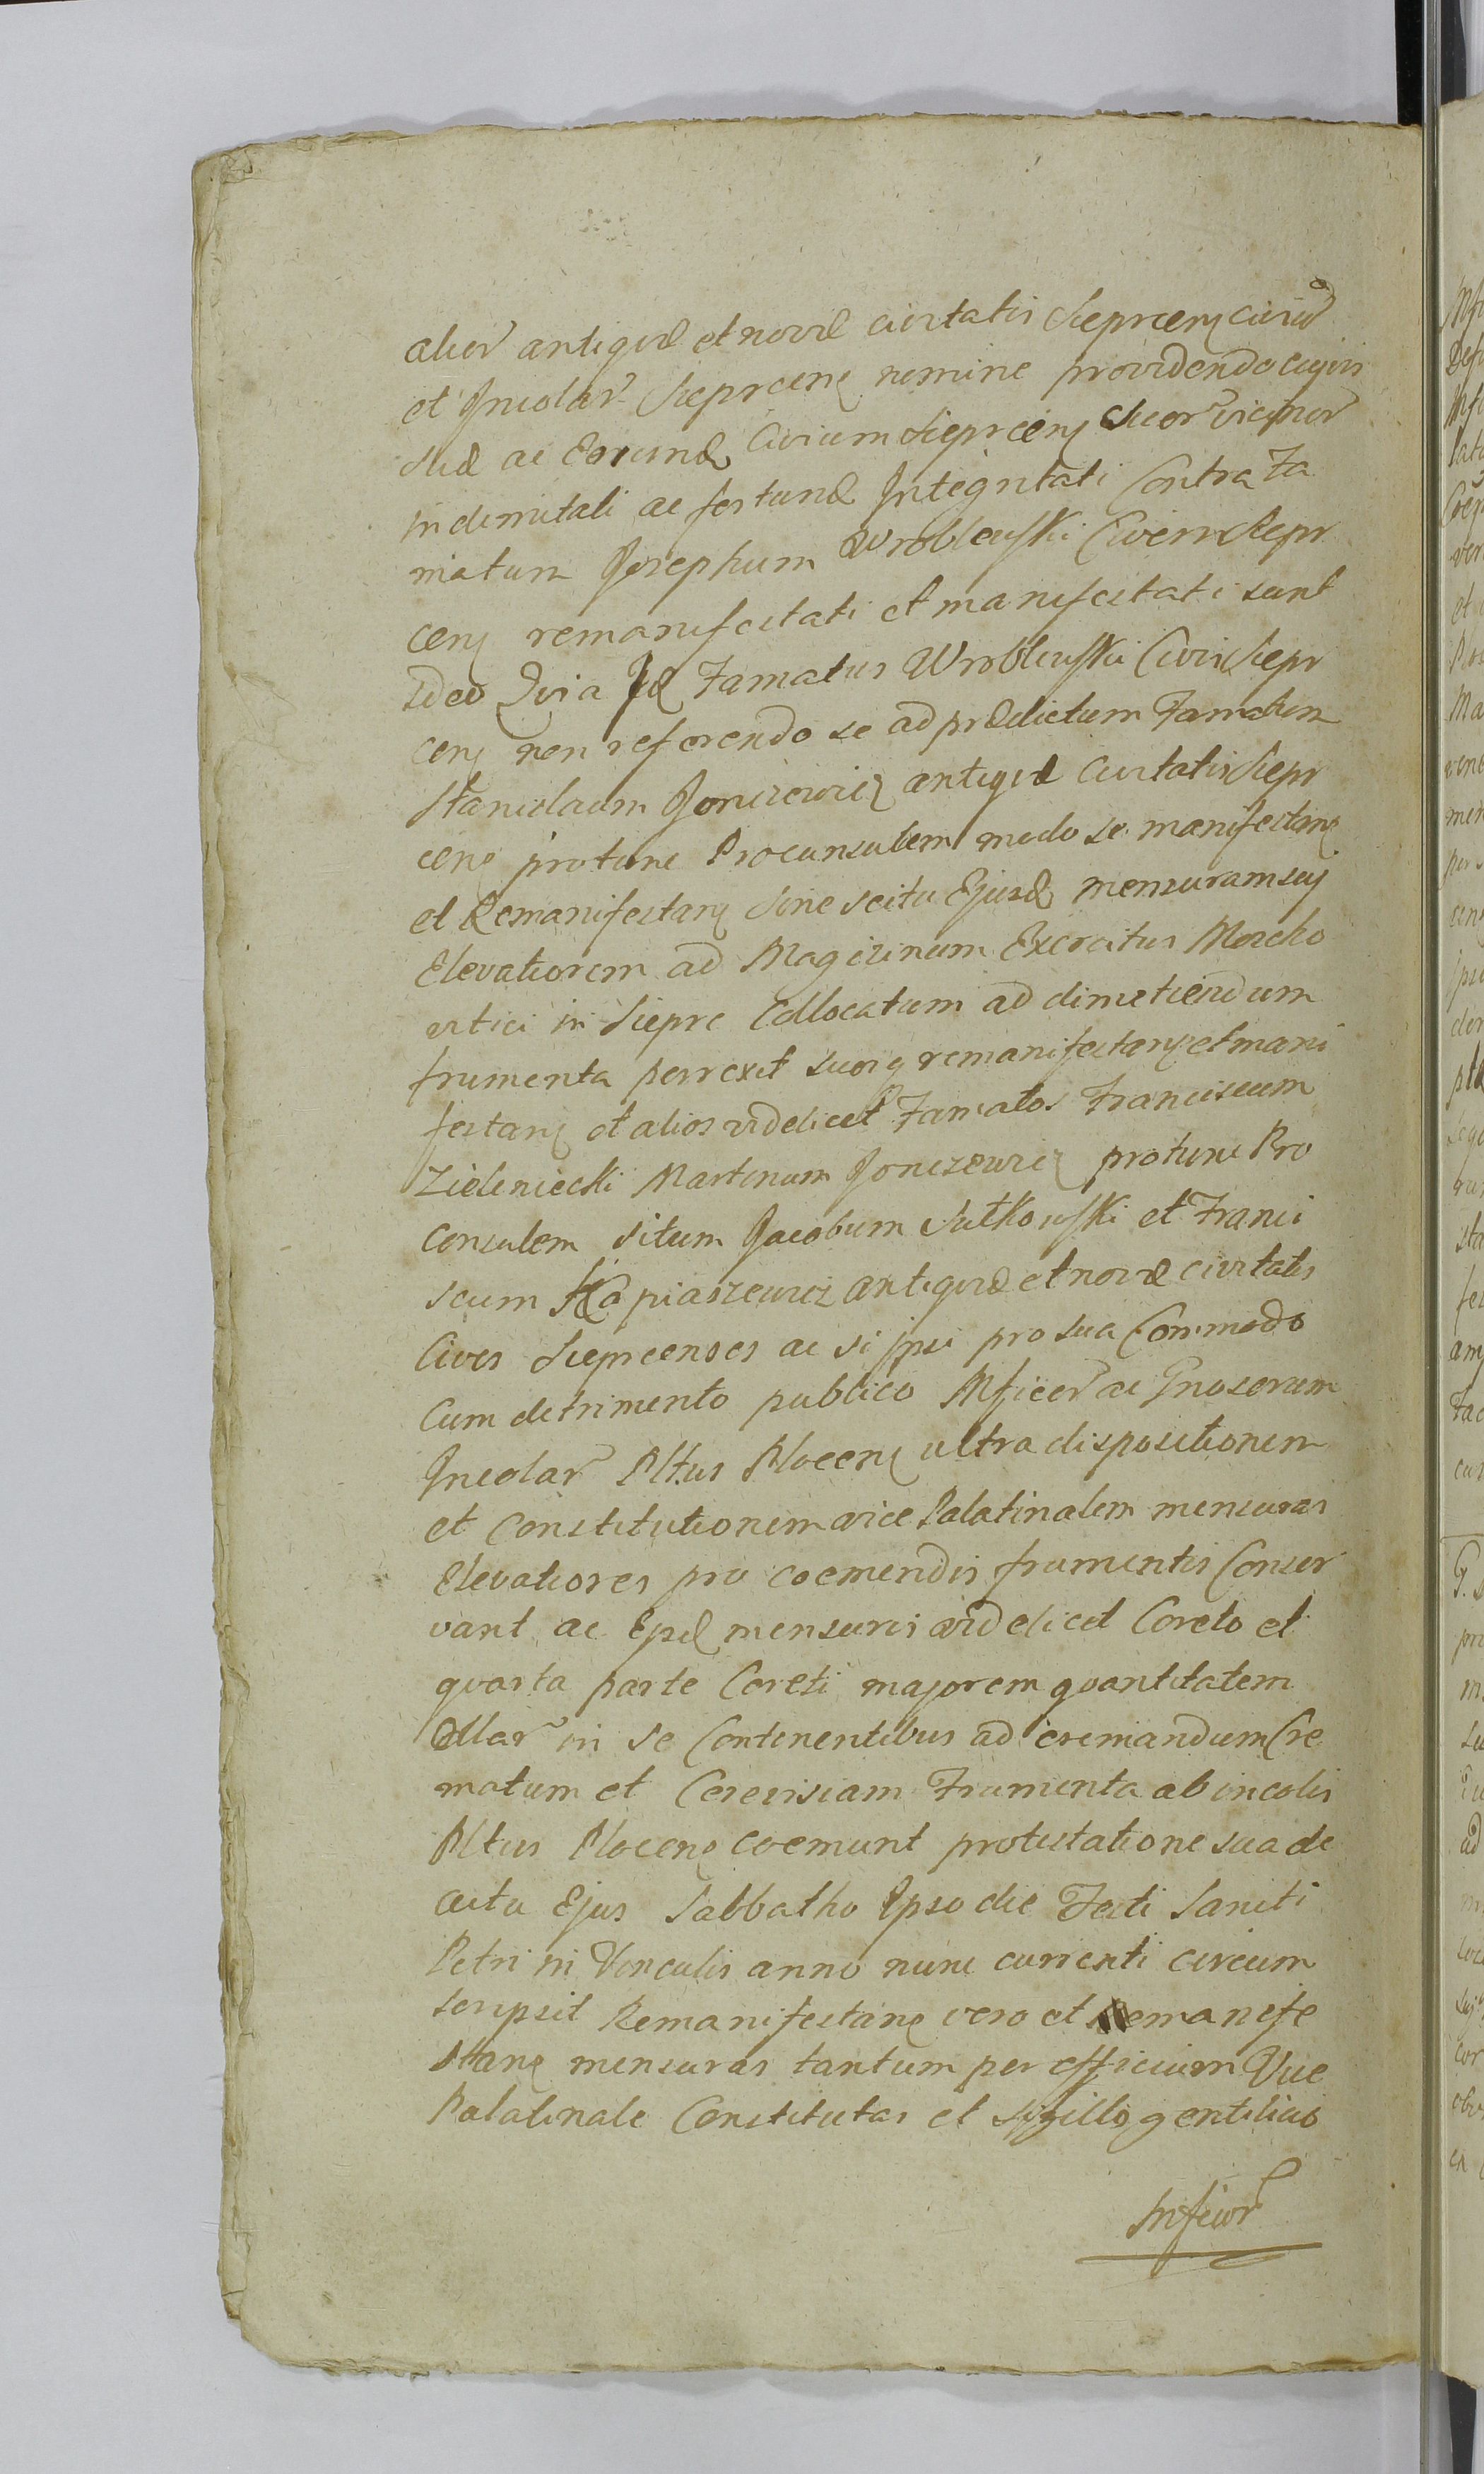 alior antiquæ et novæ civitatis Sieprcen civiũ
et Incolar Sieprcen nomine providendo cujvis
suæ ac Eorund Civium Sieprcen Suor vicinor
indemnitati ac fortunæ Integritati Contra Fa
matum Josephum Wroblewski Civem Siepr
cen remanifestati et manifestati sunt
Ideo Quia Id Famatus Wroblewski Civis Siepr
cen non referendo se ad prædictum Famatum
Stanislaum Joniczewicz antiquæ Civitatis Siepr
cen protunc Proconsulem modo se manifestan
et Remanifestan Sine scitu Ejusd mensuram suj
Elevatiorem ad Magazinum Exercitus Moscho
vitici in Sieprc Collocatum ad dimetiendum
frumenta perrexit suosq remanifestan et mani
festan et alios videlicet Famatos Franciscum
Zieleniecki Martinum Joniczewicz protunc Pro
consulem situm Jacobum Sutkowski et Franci
scum Kopiaszewicz antiquæ et novæ civitatis
Cives Sieprcenses ac si ipsi pro sua Commodo
Cum detrimento publico Mficor ac Gnosorum
Incolar Pltus Plocen ultra dispositionem
et Constitutionem vice Palatinalem mensuras
Elevatiores pro coemendis frumentis Conser
vant ac Ejsd mensuris videlicet Coreto et
quarta parte Coreti majorem quantitatem
Ollar in se Continentibus ad cremandum Cre
matum et Cerevisiam Frumenta ab incolis
Pltus Plocen coemunt protestatione sua de
actu Ejus Sabbatho Ipso die Festi Sancti
Petri in Vinculis anno nunc currenti circum
scripsit Remanifestan vero et Remanife
stan mensuras tantum per officium Vice
Palatinale Constitutas et sigillo gentilicio
Mficor